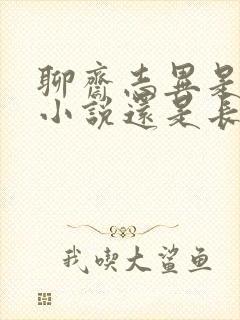 聊齋志異是
小說還是長
我喫大鯊鱼